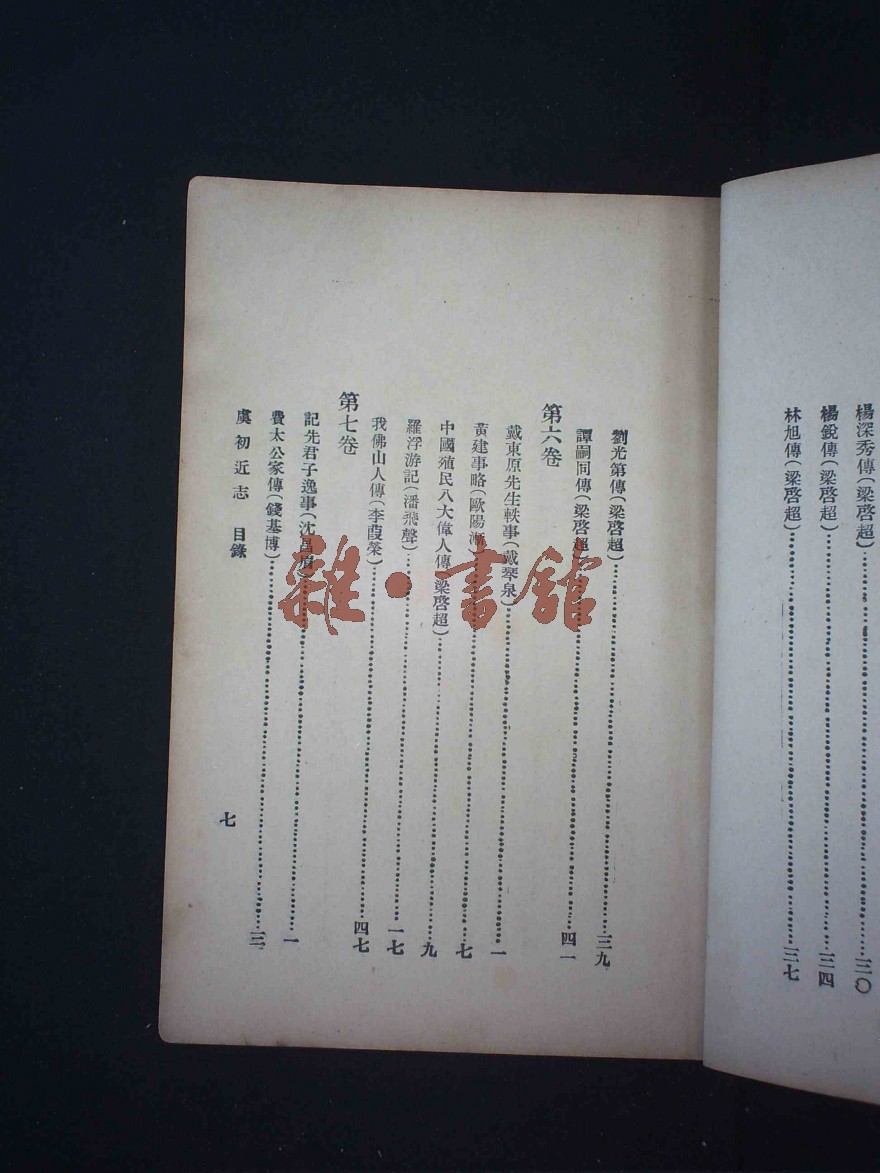 楊深秀傳(梁啓超)……三〇
楊銳傳(梁啓超)……三四
林旭傳(梁啓超)……三七
劉光第傳(梁啓超)……三九
譚嗣同傳(梁啓超)……四一
第六卷
戴東原先生軼事(戴琴泉)……一
黃建事略(歐陽漸)……七
中國殖民八大偉人傳(梁啓超)……九
羅浮游記(潘飛聲)……一七
我佛山人傳(李葭榮)……四七
第七卷
記先君子逸事(沈昌眉)……一
費太公家傳(錢基博)……三
虞初近志 目錄
七
雜·書館